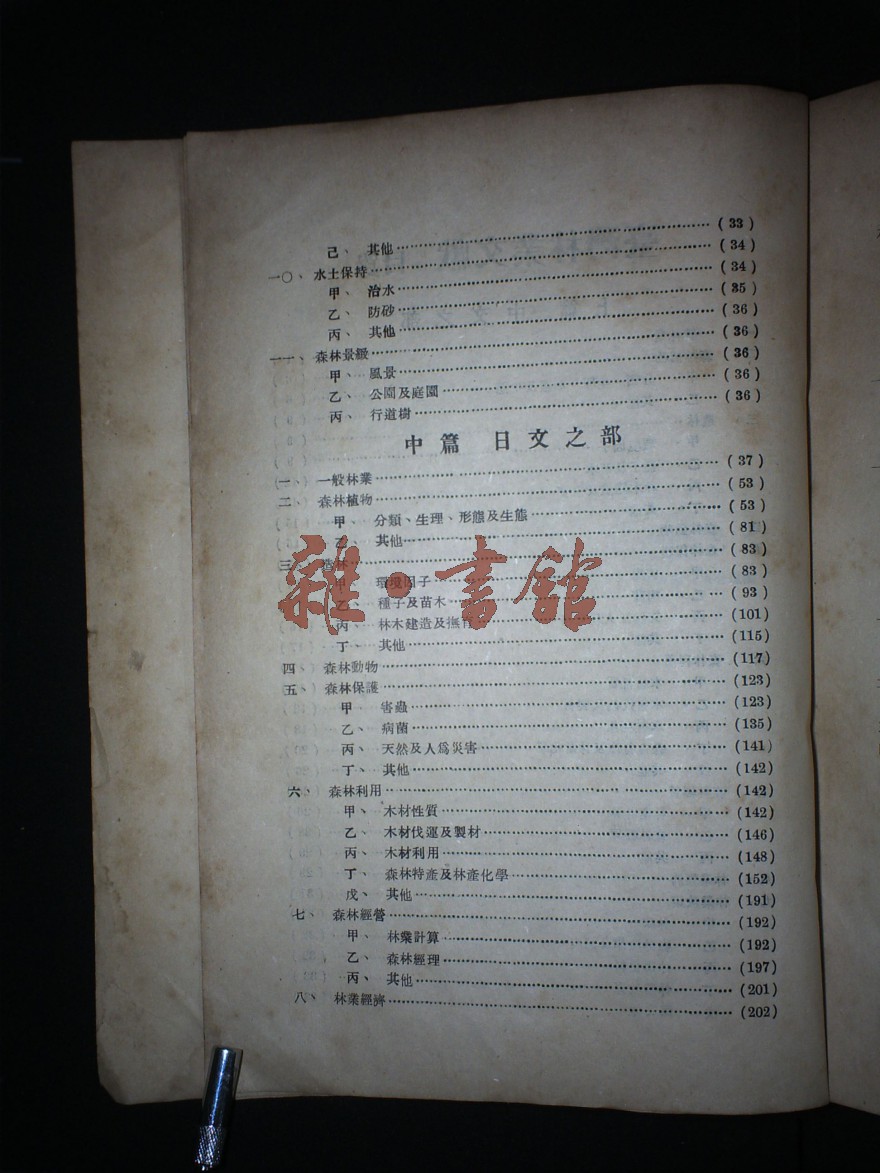 己、 其他 (33)
一〇、 水土保持 (34)
甲、 治水 (34)
乙、 防砂 (35)
丙、 其他 (36)
一一、 森林景緻 (36)
甲、 風景 (36)
乙、 公園及庭園 (36)
丙、 行道樹 (36)
中篇 日文之部
一、 一般林業 (37)
二、 森林植物 (53)
甲、 分類、生理、形態及生態 (53)
乙、 其他 (81)
三、 造林 (83)
甲、 環境因子 (83)
乙、 種子及苗木 (93)
丙、 林木建造及撫育 (101)
丁、 其他 (115)
四、 森林動物 (117)
五、 森林保護 (123)
甲、 害蟲 (123)
乙、 病菌 (135)
丙、 天然及人爲災害 (141)
丁、 其他 (142)
六、 森林利用 (142)
甲、 木材性質 (142)
乙、 木材伐運及製材 (146)
丙、 木材利用 (148)
丁、 森林特產及林產化學 (152)
戊、 其他 (191)
七、 森林經營 (192)
甲、 林業計算 (192)
乙、 森林經理 (197)
丙、 其他 (201)
八、 林業經濟 (202)
雜·書館